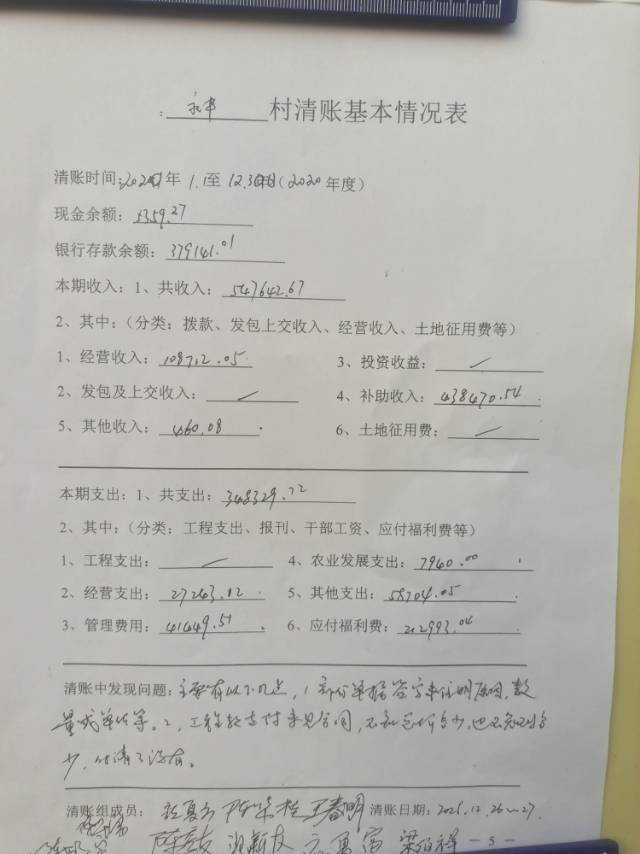 永丰 村清账基本情况表
清账时间:2020年 1.至 12.30日(2020年度)
现金余额: 5359.27
银行存款余额: 379141.01
本期收入:1、共收入: 547642.67
2、其中:(分类:拨款、发包上交收入、经营收入、土地征用费等)
1、经营收入: 108712.05 3、投资收益: /
2、发包及上交收入: / 4、补助收入: 438470.54
5、其他收入: 460.08 6、土地征用费: /
本期支出:1、共支出: 348329.72
2、其中:(分类:工程支出、报刊、干部工资、应付福利费等)
1、工程支出: / 4、农业发展支出: 7940.00
2、经营支出: 27243.12 5、其他支出: 58704.05
3、管理费用: 41449.51 6、应付福利费: 212993.04
清账中发现问题:主要有以下几点,1部份单据签字未注明原因,数
量或单价等。2、工程款支付未见合同,不知总价多少,也不知付多
少,付清了没有。
清账组成员: 王春明 清账日期:2025.12.26~27.
-5-